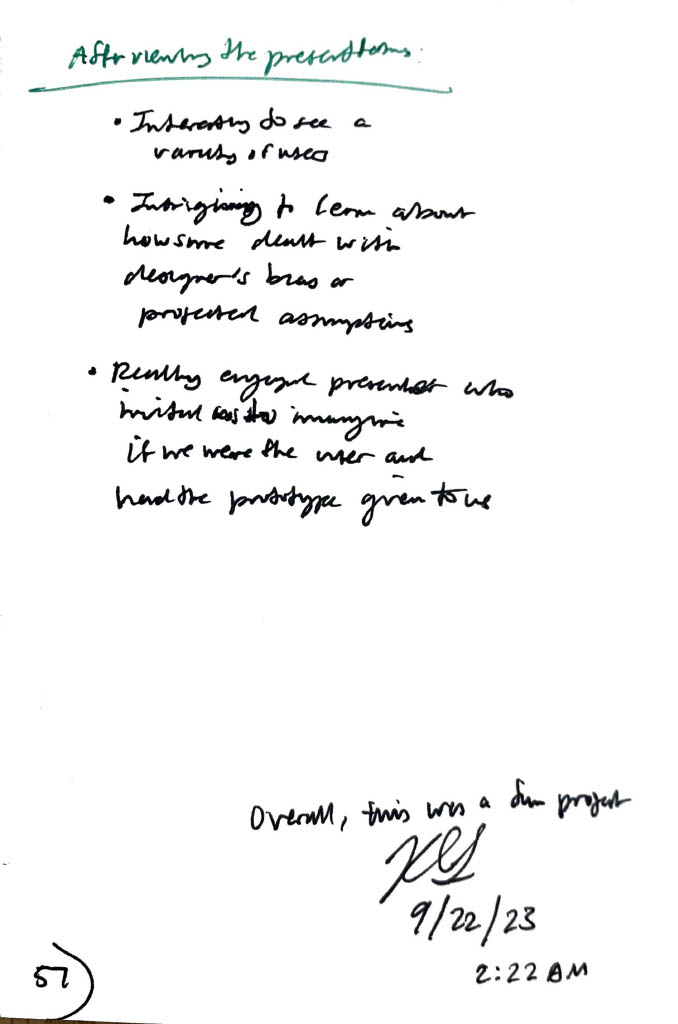 After viewing the presentations:
• Interesting to see a
variety of uses
• Intriguing to learn about
how some dealt with
designer's bias or
projected assumptions
• Really enjoyed presenter who
invited us to imagine
if we were the user and
had the prototype given to us
Overall, this was a fun project
9/22/23
2:22 AM
57